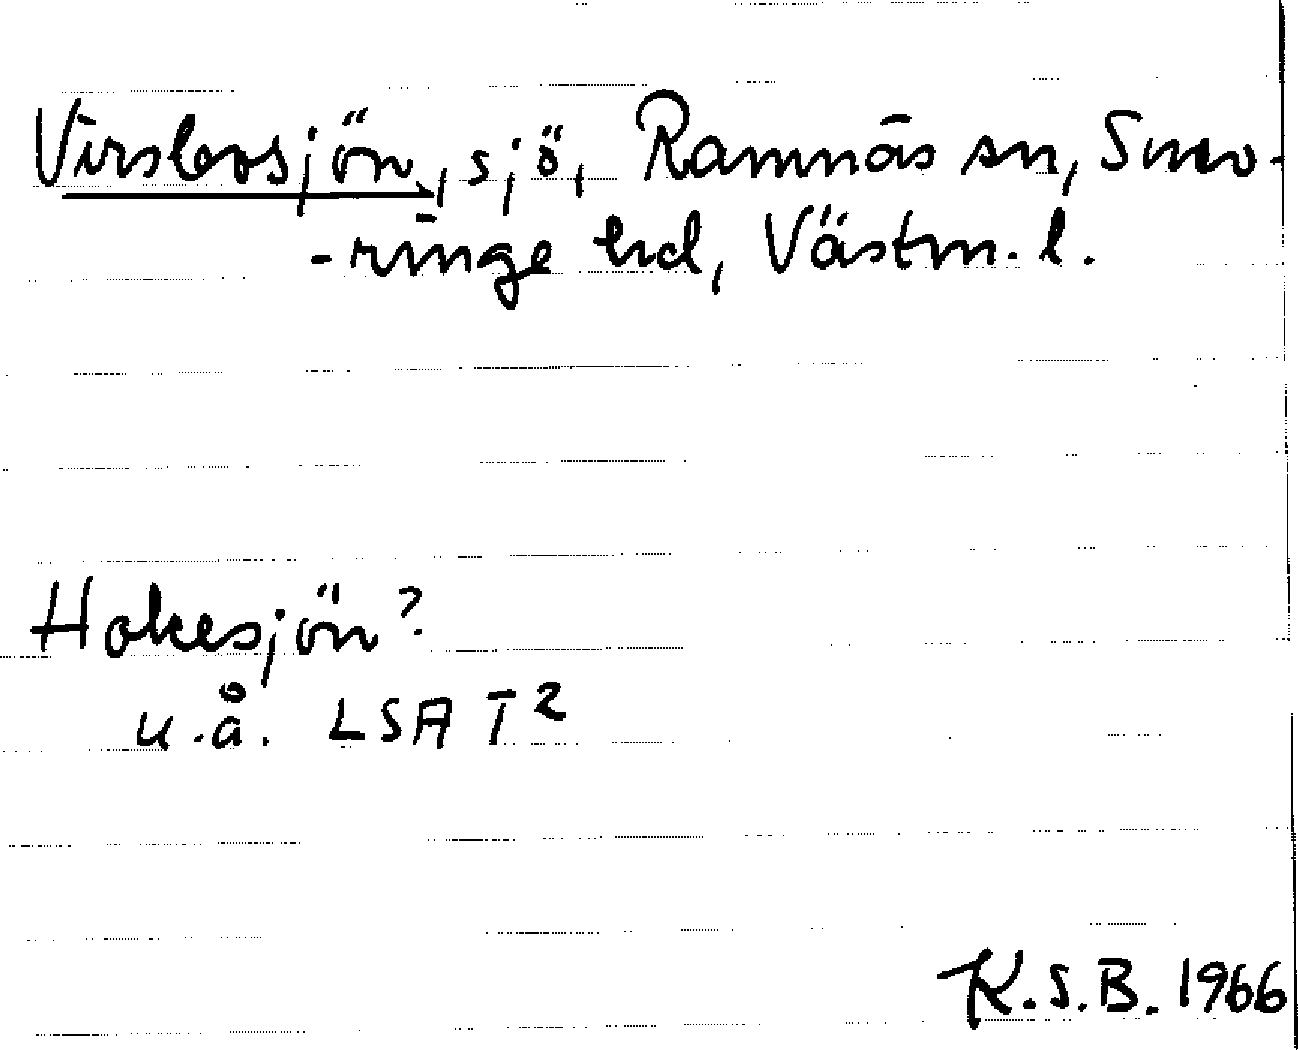 Virsbosjön, sjö, Ramnäs sn, Snev-
-ringe hd, Västm. l.
Hokesjön?
u.å. LSA T2
K.S.B. 1966